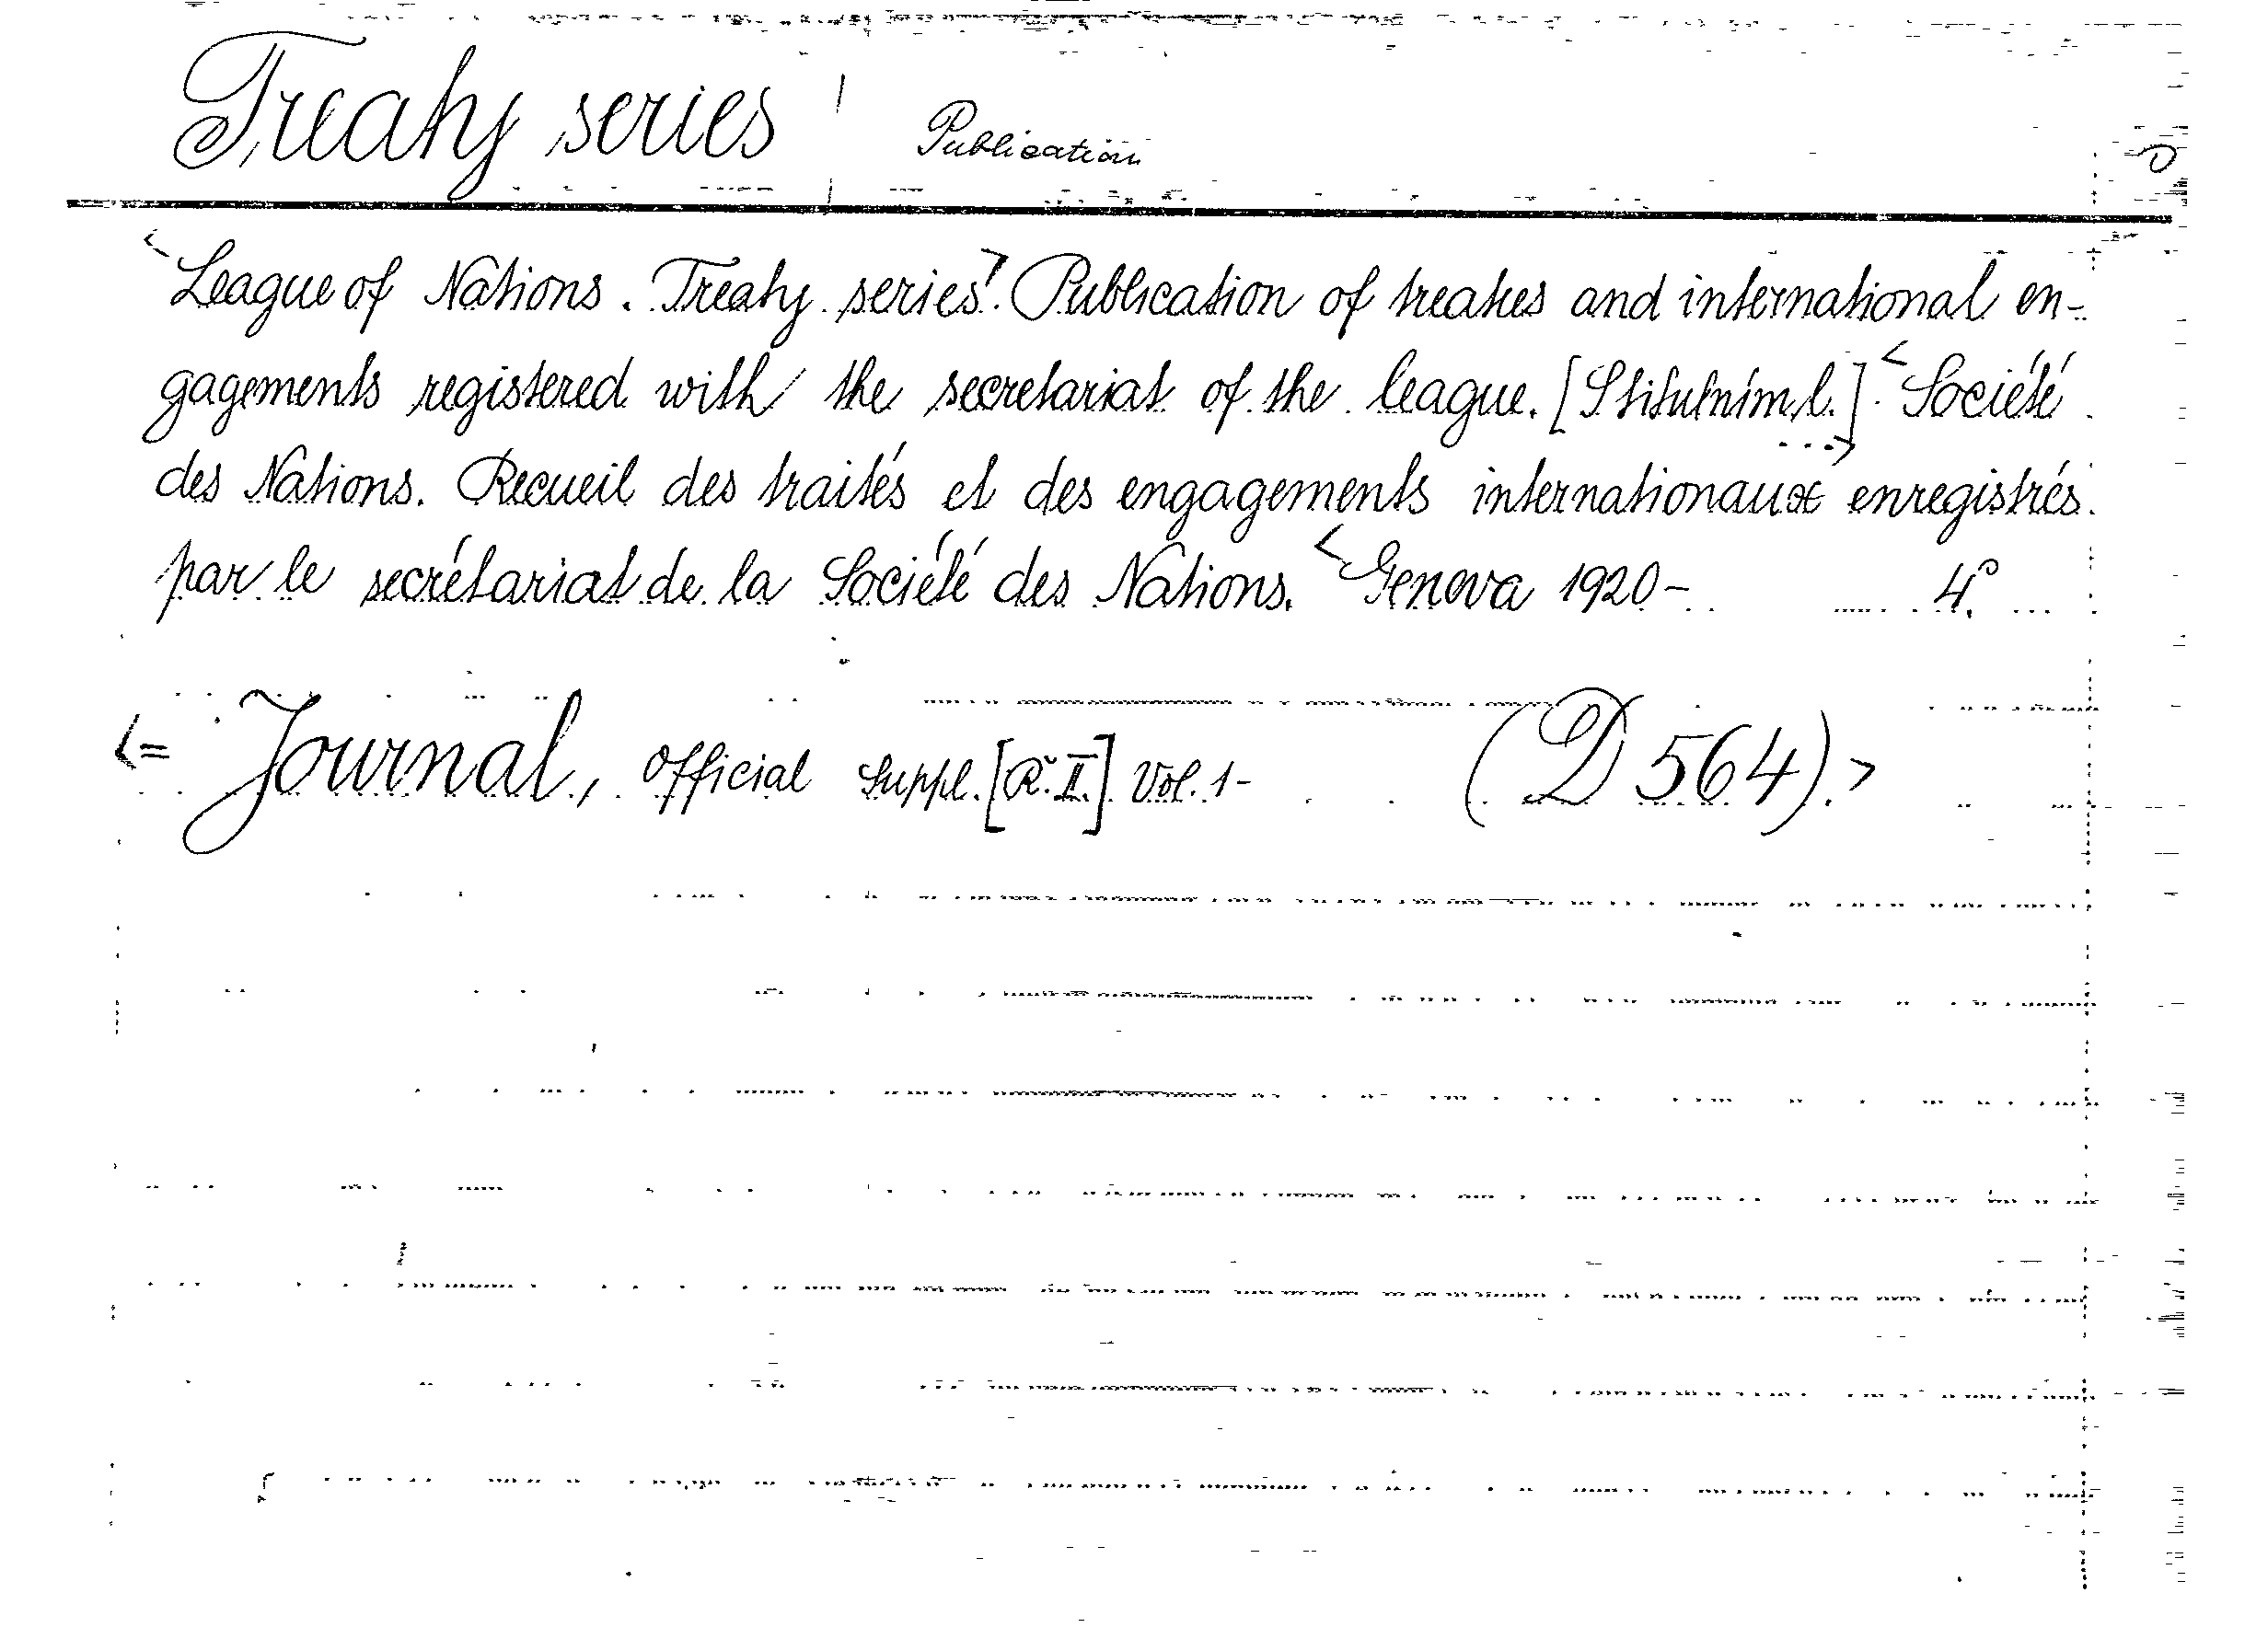 Treaty series | Publication
<League of Nations. Treaty series>. Publication of treaties and international en-
gagements registered with the secretariat of the league. [S titulním l.] <Société
des Nations. Recueil des traités et des engagements internationaux> enregistrés
par le secrétariat de la Société des Nations. <Genova 1920- 4°.
<= Journal, official suppl. [Ř. II.] Vol. 1- (D 564).>